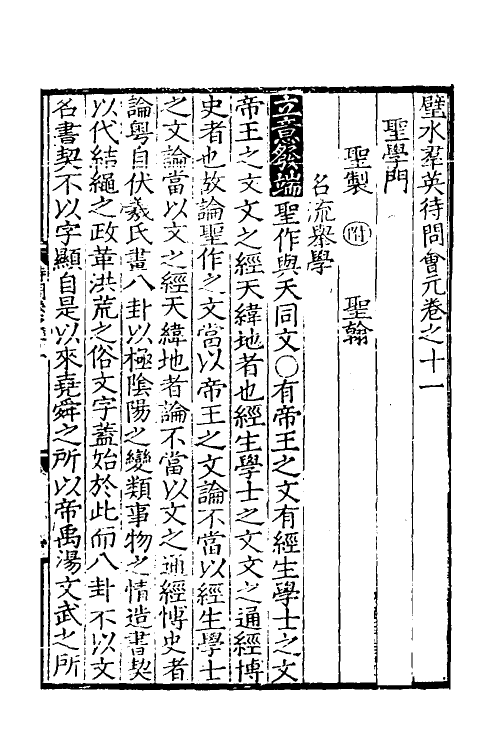 璧水羣英待問會元卷之十一
聖學門
聖製 附 聖翰
名流舉學
立意發端 聖作與天同文○有帝王之文有經生學士之文
帝王之文文之經天緯地者也經生學士之文文之通經博
史者也故論聖作之文當以帝王之文論不當以經生學士
之文論當以文之經天緯地者論不當以文之通經博史者
論粤自伏羲氏畫八卦以極陰陽之變類事物之情造書契
以代結繩之政革洪荒之俗文字蓋始於此而八卦不以文
名書契不以字顯自是以來堯舜之所以帝禹湯文武之所